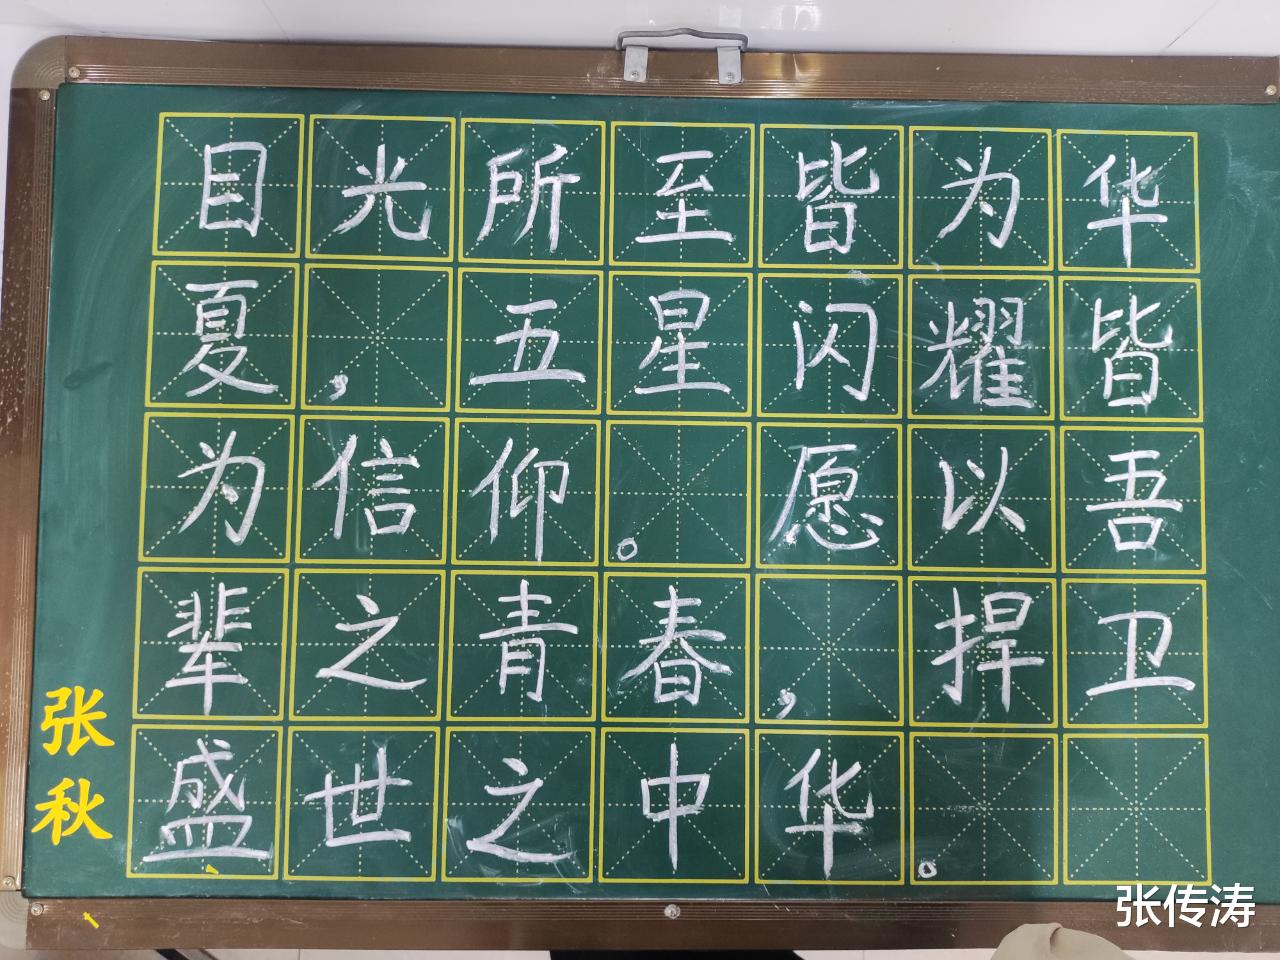 目光所至皆为华
夏，五星闪耀皆
为信仰。愿以吾
辈之青春，捍卫
盛世之中华。
张秋
张传涛